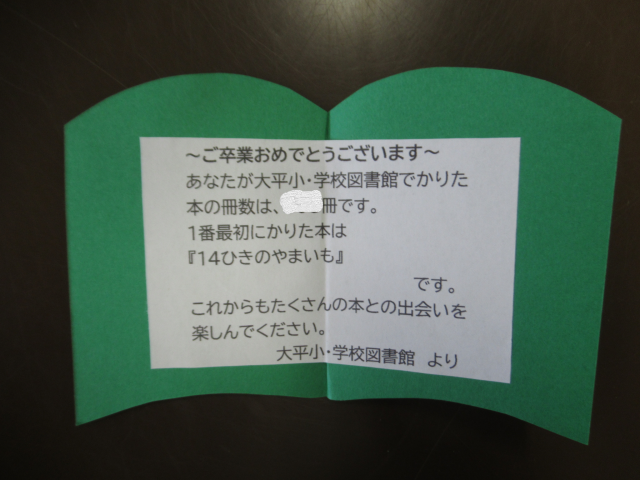 ～ご卒業おめでとうございます～
あなたが大平小・学校図書館でかりた
本の冊数は、冊です。
1番最初にかりた本は
『14ひきのやまいも』
です。
これからもたくさんの本との出会いを
楽しんでください。
大平小・学校図書館 より